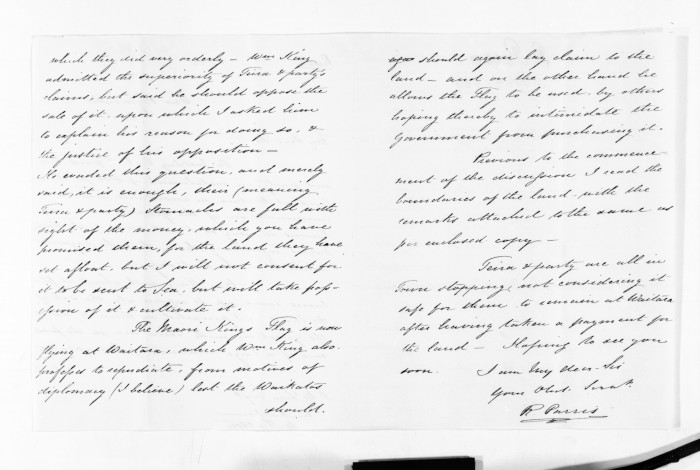 which they did very orderly – Wm King
admitted the superiority of Teira & party's
claims, but said he should oppose the
sale of it. upon which I asked him
to explain his reason for doing so, &
the justice of his opposition –
He evaded this question, and merely
said, it is enough, their (meaning
Teira & party) Stomachs are full with
sight of the money, which you have
promised them, for the land they have
set afloat, but I will not consent for
it to be sent to Sea, but will take pos-
session of it & cultivate it.
The Maori Kings Flag is now
flying at Waitara, which Wm King also
professes to repudiate, from motives of
diplomacy (I believe) lest the Waikatos
should.
should again lay claim to the
land – and on the other hand he
allows the Flag to be used by others
hoping thereby to intimidate the
Government from purchasing it.
Previous to the commence
ment of the discussion I read the
boundaries of the land with the
remarks attached to the same as
per enclosed copy –
Teira & party are all in
Town stopping, not considering it
safe for them to remain at Waitara
after having taken a payment for
the land – Hoping to see you
soon. I am My dear Sir
Your Obdt. Servt.
R Parris